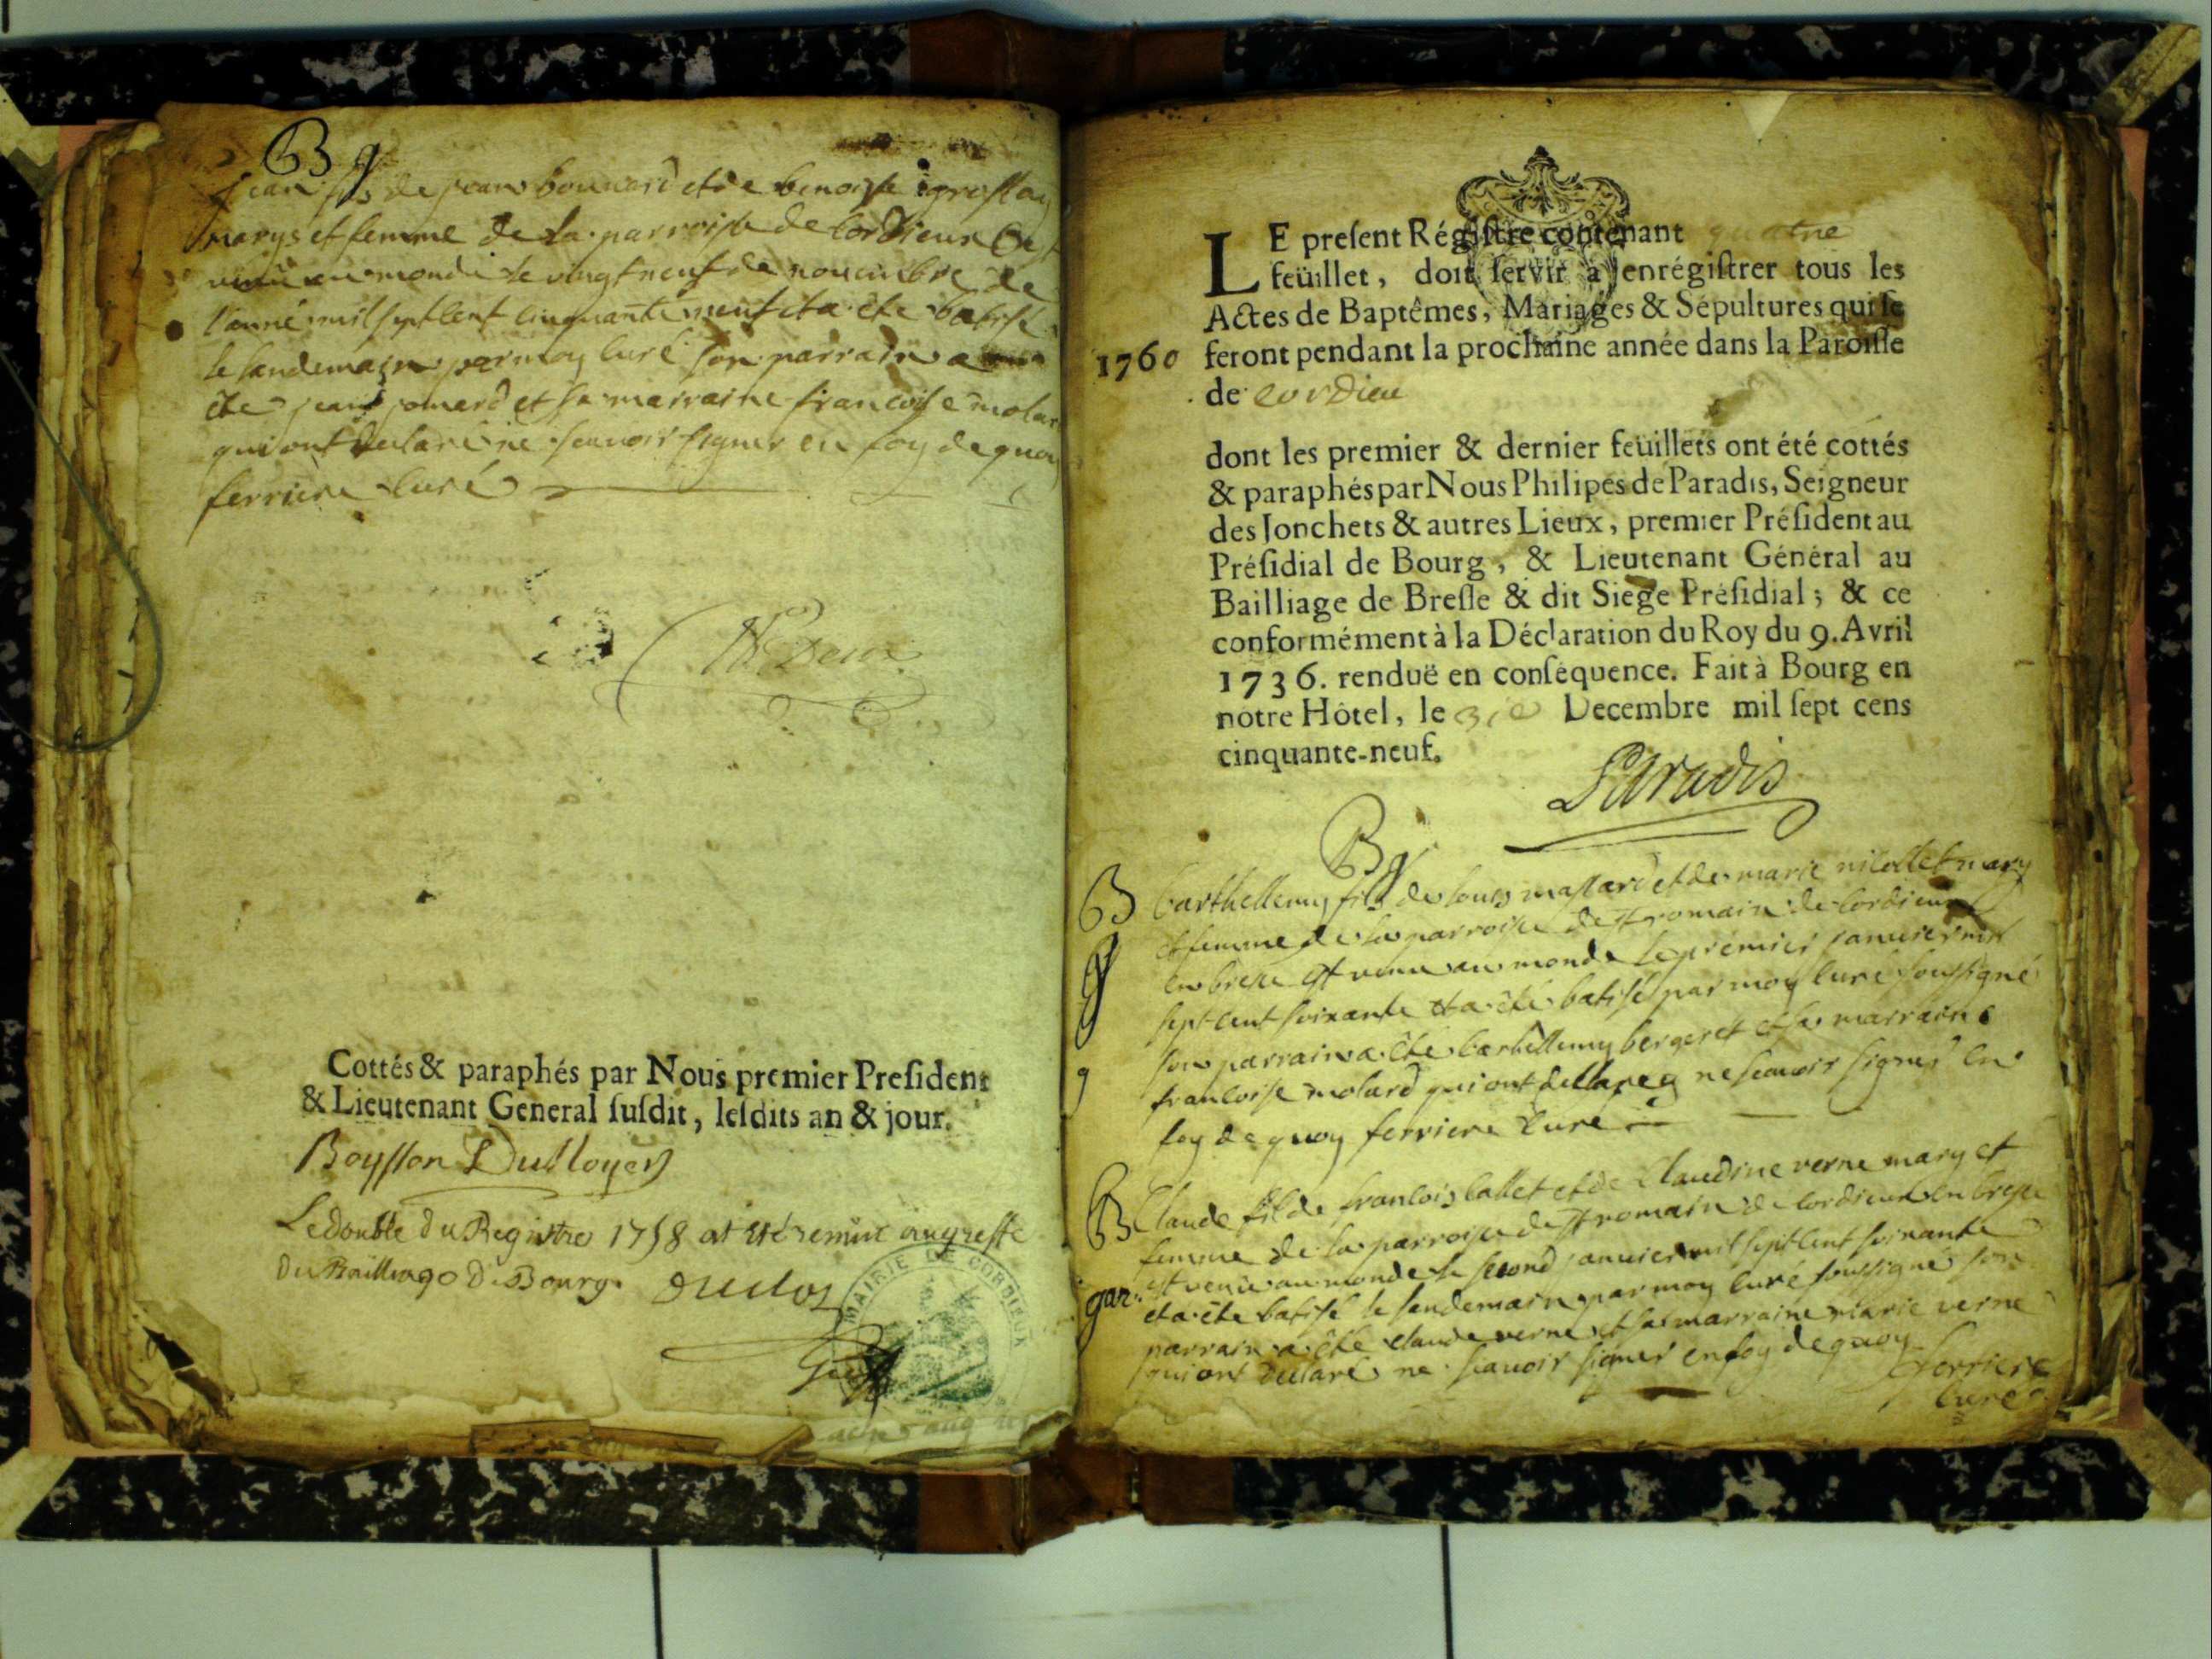 B g
jean fils de jean bouvard et de benoiste
marys et femme de la parroisse de Cordieux est
venu au monde le vingt neuf de novembre de
l'anné mil sept cent cinquante neuf et a été batisé
le landemain par moy curé son parrain a
été jean jomard et sa marraine francoise molar
qui ont declaré ne scavoir signer en foy de quoy
ferriere curé
Cottés & paraphés par Nous premier Preſident
& Lieutenant General ſuſdit, leſdits an & jour.
Le double du Registre 1758 at été remis au greffe
du Bailliage de Bourg. duclos
MAIRIE DE CORDIEUX
LE preſent Régiſtre contenant quatre
feüillet, doit ſervir à enrégiſtrer tous les
Actes de Baptêmes, Mariages & Sépultures qui ſe
1760 feront pendant la prochaine année dans la Paroiſſe
de Cordieu
dont les premier & dernier feüillets ont été cottés
& paraphés par Nous Philipes de Paradis, Seigneur
des Jonchets & autres Lieux, premier Préſident au
Préſidial de Bourg, & Lieutenant Général au
Bailliage de Breſſe & dit Siége Préſidial; & ce
conformément à la Déclaration du Roy du 9. Avril
1736. renduë en conſéquence. Fait à Bourg en
nôtre Hôtel, le 31e Decembre mil ſept cens
cinquante-neuf.
Paradis
B g
B barthellemy fils de louis massard et de marie nicollet mary
et femme de la parroisse de st romain de Cordieux
en bresse est venu au monde le premier janvier mil
sept cent soixante et a été batisé par moy curé soussigné
son parrain a été barthellemy bergeret et sa marraine
francoise molard qui ont declareg ne scavoir signer en
foy de quoy ferriere curé
B Claude fil de francois callet et de Claudine verne mary et
femme de la parroisse de st romain de Cordieux en bresse
gar: est venu au monde le second janvier mil sept cent soixante
et a été batisé le landemain par moy curé soussigné son
parrain a été claude verne et sa marraine marie verne
qui ont declaré ne scavoir signer en foy de quoy
ferriere
curé